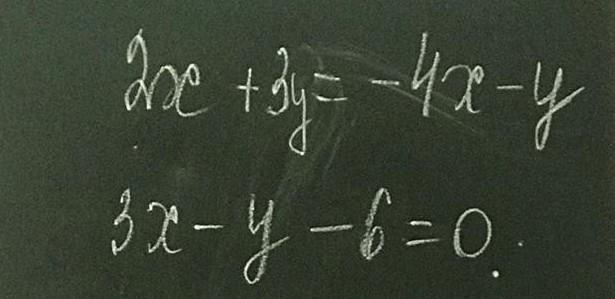 2x + 3y = -4x - y
3x - y - 6 = 0.